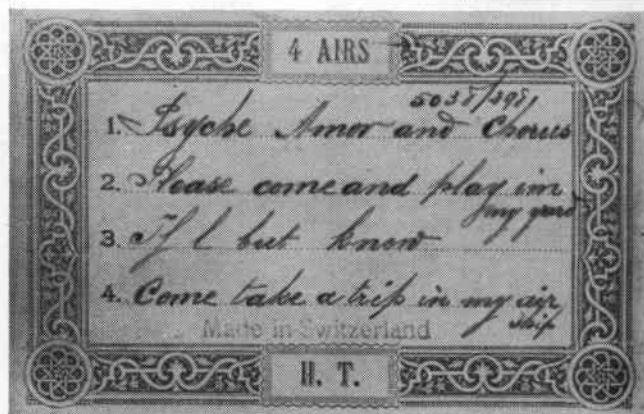 4 AIRS
5038/298
1. Psyche Amor and Chorus
2. Please come and play im
my yard
3. If I but know
4. Come take a trip in my air
ship
Made in Switzerland
H. T.